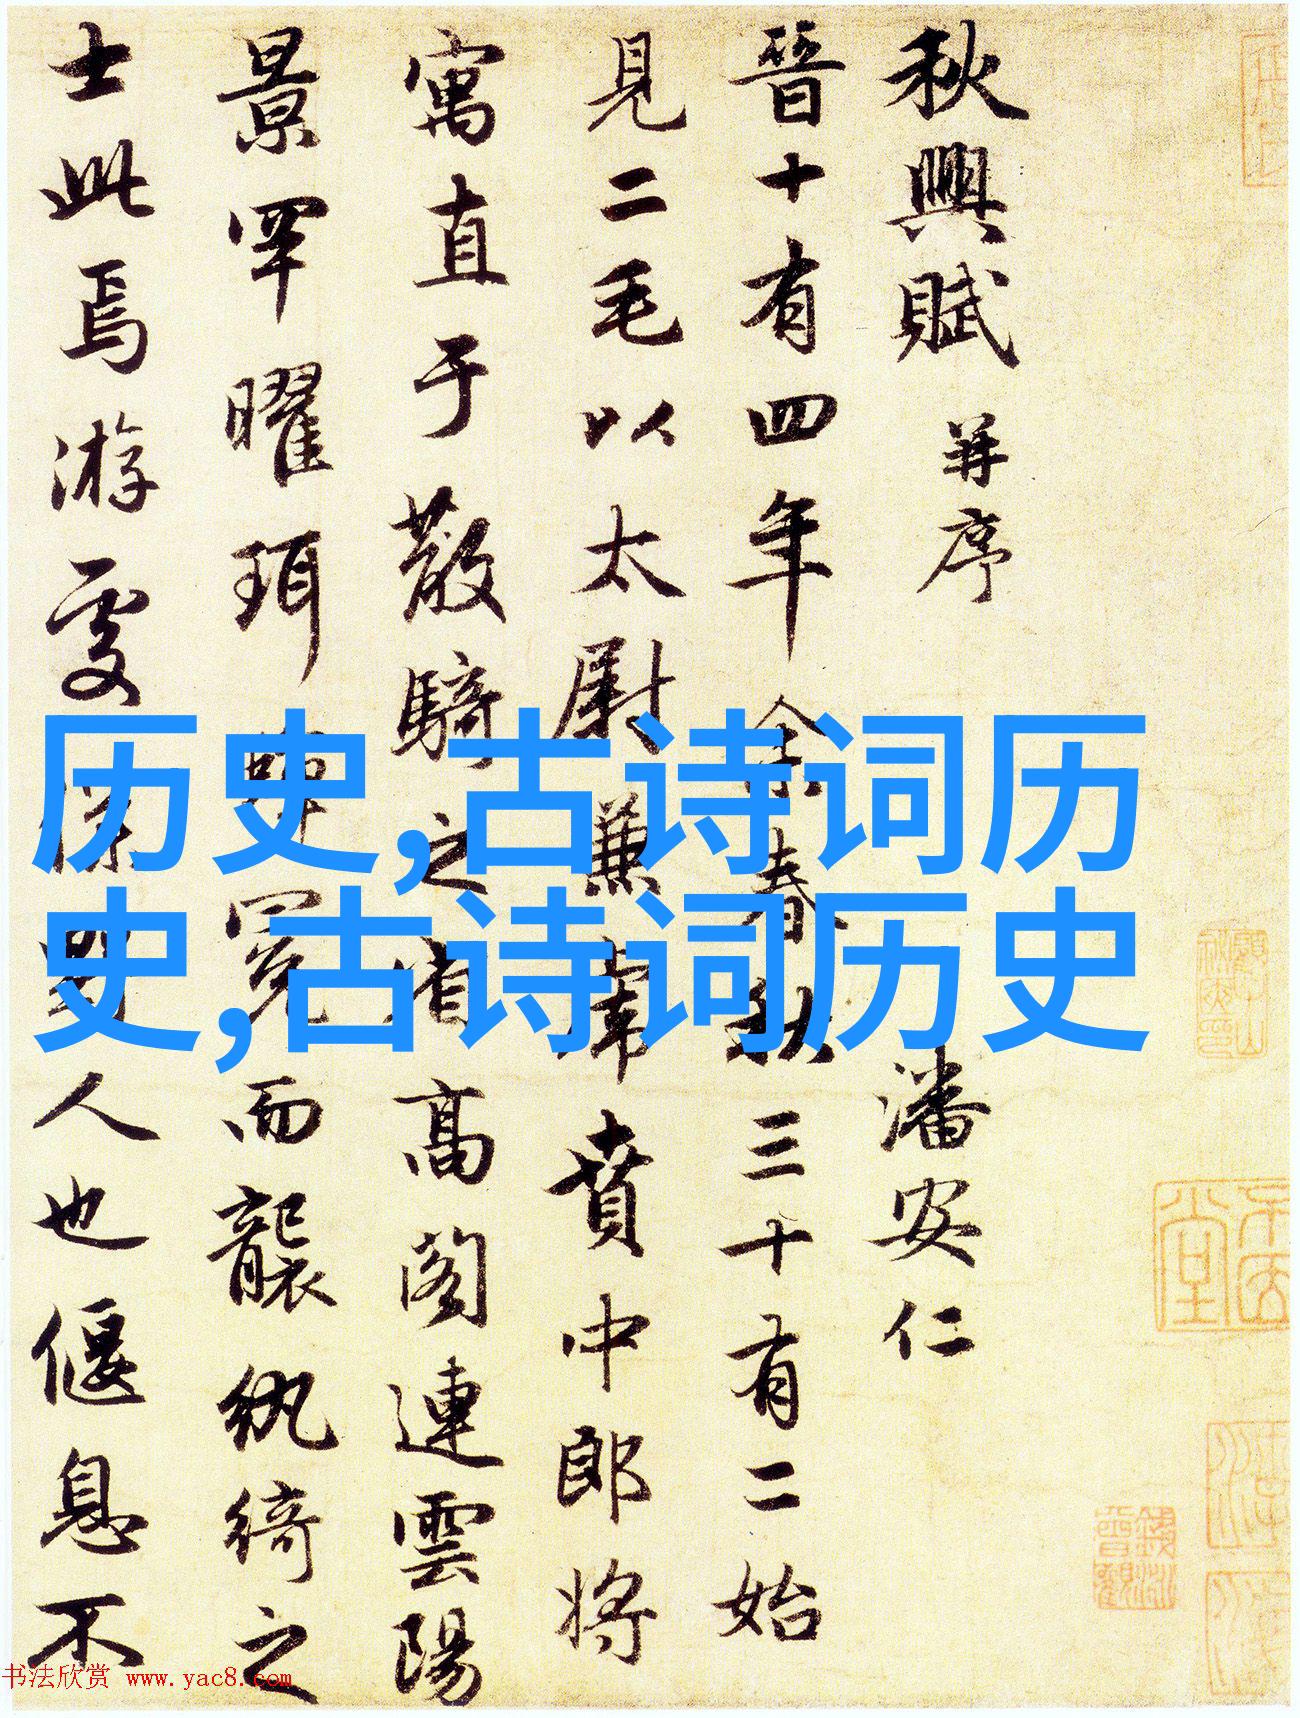 秋興賦 并序 潘安仁
晉十有四年余春秋三十有二始
見二毛以太尉兼虎賁中郎将
寓直于散騎之省高阁連雲陽
景罕曜珥蝉冕而襲紈綺之
士此焉游處
人也偃息不
历史,古诗词历
史,古诗词历史
书法欣赏 www.yac8.com